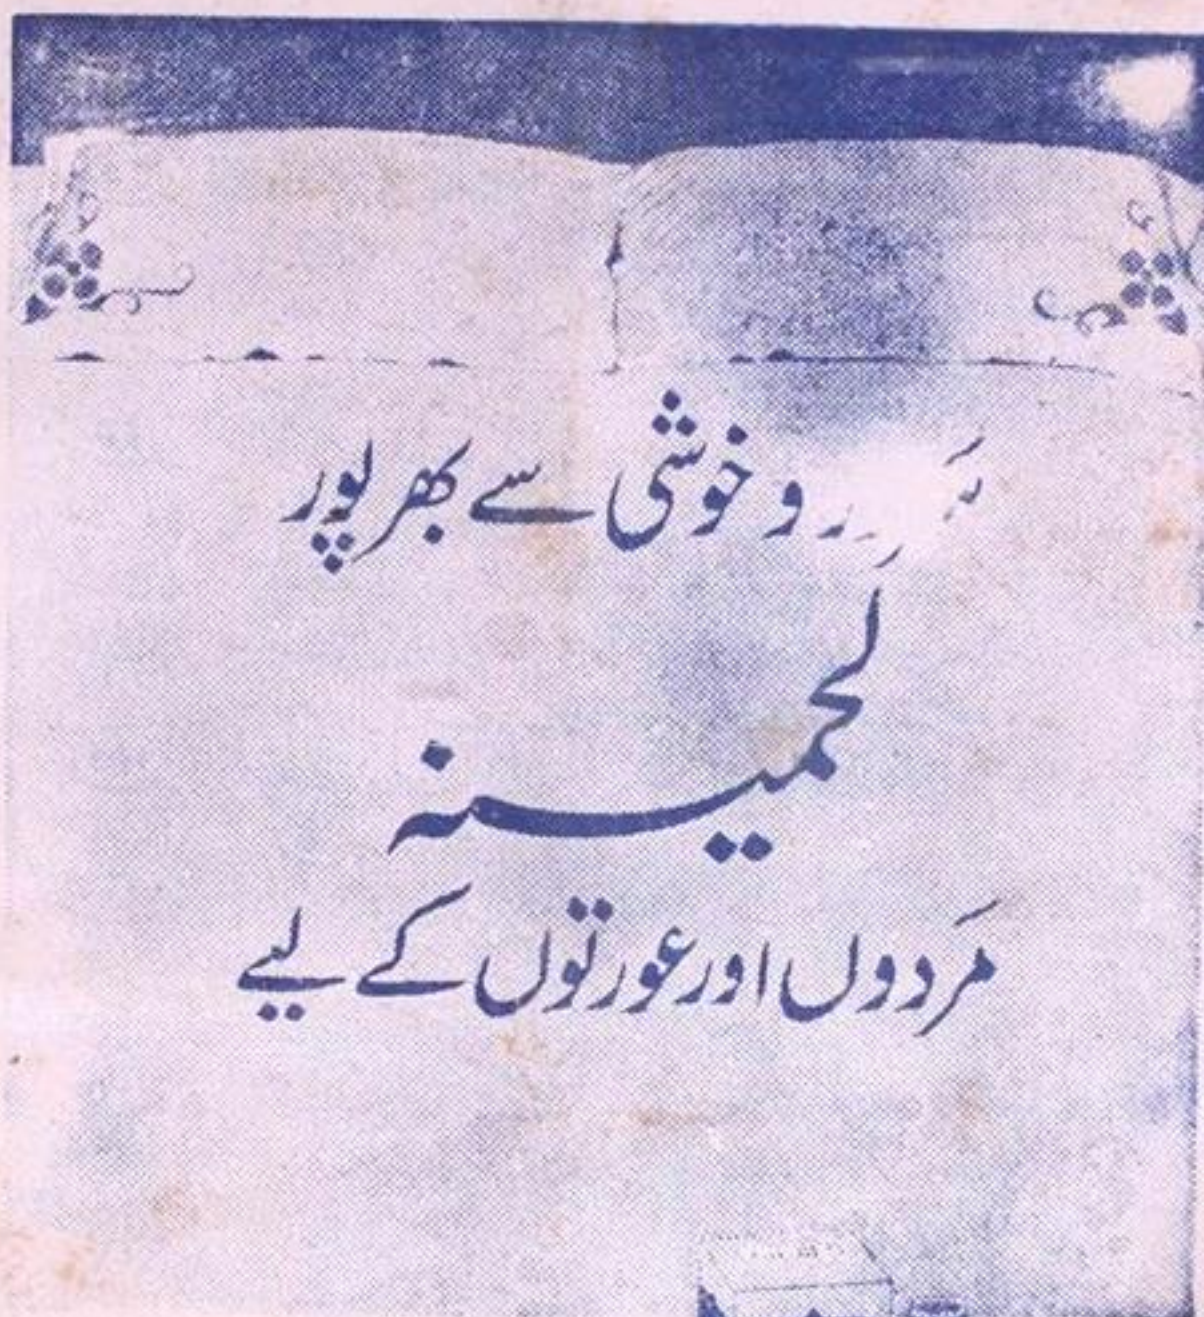 و خوشی سے بھرپور
لحمینہ
مَردوں اور عورتوں کے لیے